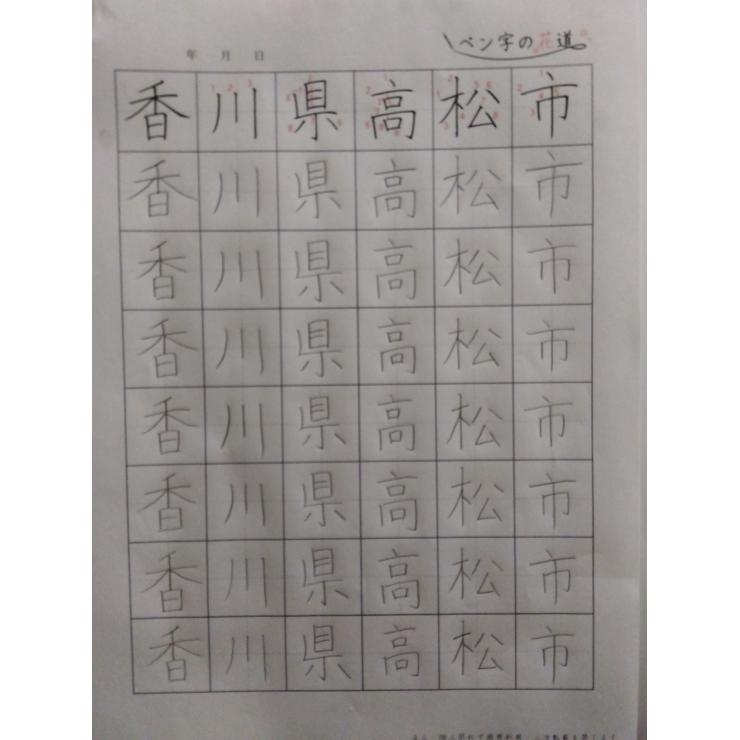 ペン字の花道
年 月 日
香川県高松市
香川県高松市
香川県高松市
香川県高松市
香川県高松市
香川県高松市
香川県高松市
香川県高松市